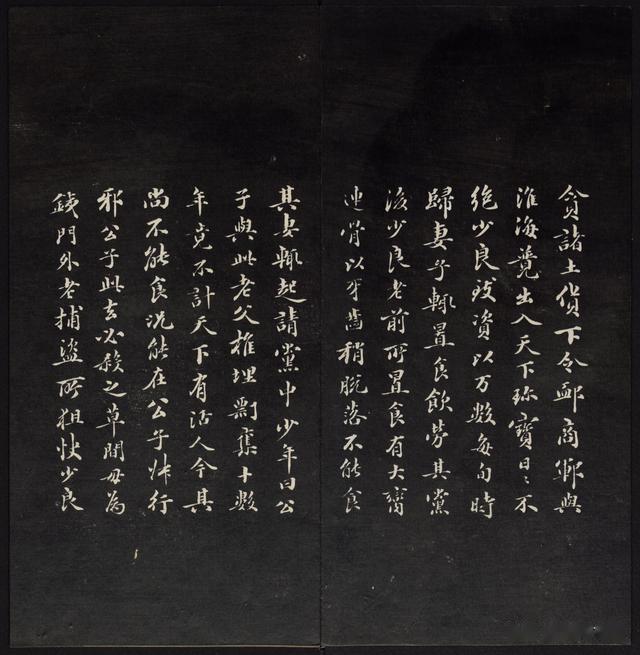 貪諸土貨下令郵商鄆與
淮海競出入天下珎寶日〻不
絶少良致資以万數每旬時
歸妻子輒置食飲勞其黨
後少良老前所置食有大臠
連骨以牙齒稍脫落不能食
其妻輒起請黨中少年曰公
子與此老父椎埋剽奪十數
年竟不計天下有活人今其
尚不能食況能在公子叔行
邪公子此去必殺之草間毋為
鐵門外老捕盜所狙快少良